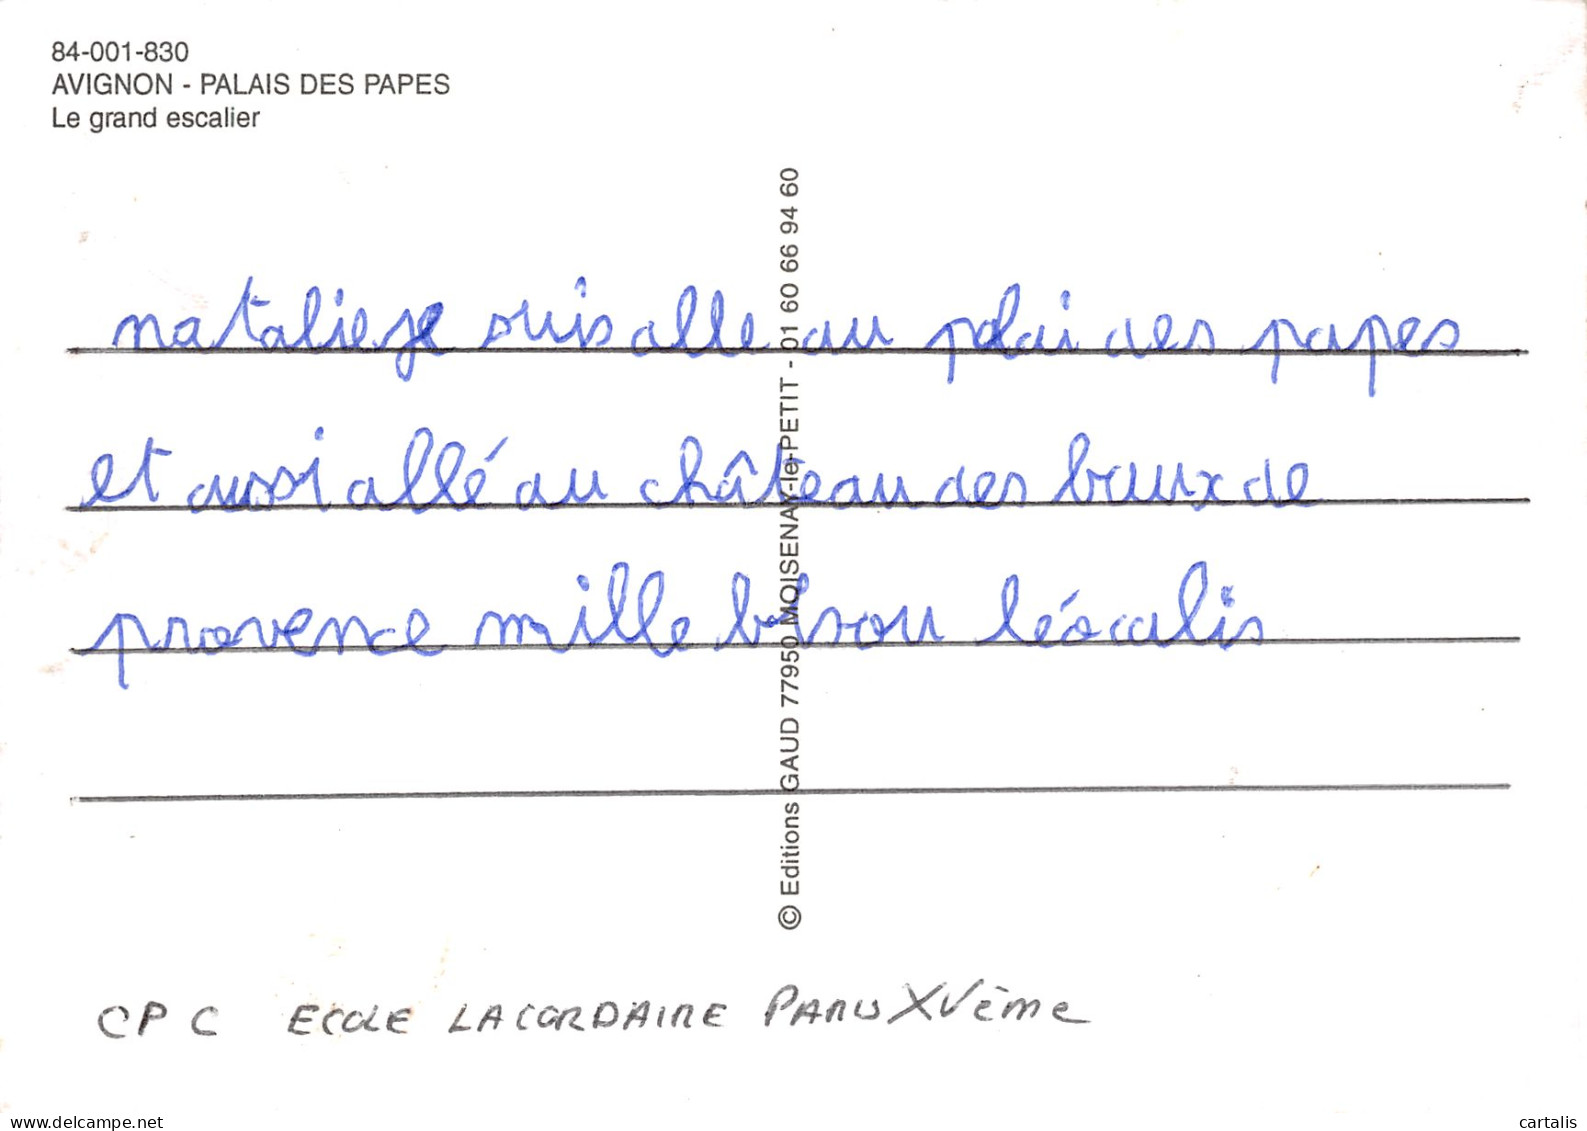 84-001-830
AVIGNON - PALAIS DES PAPES
Le grand escalier
natalie je suis alle au palai des papes
et aussi allé au château des baux de
provence mille bisou
© Editions GAUD 77950 MOISENAY-le-PETIT - 01 60 66 94 60
CP C ECOLE LACORDAIRE PARIS XVème
delcampe.net
cartalis